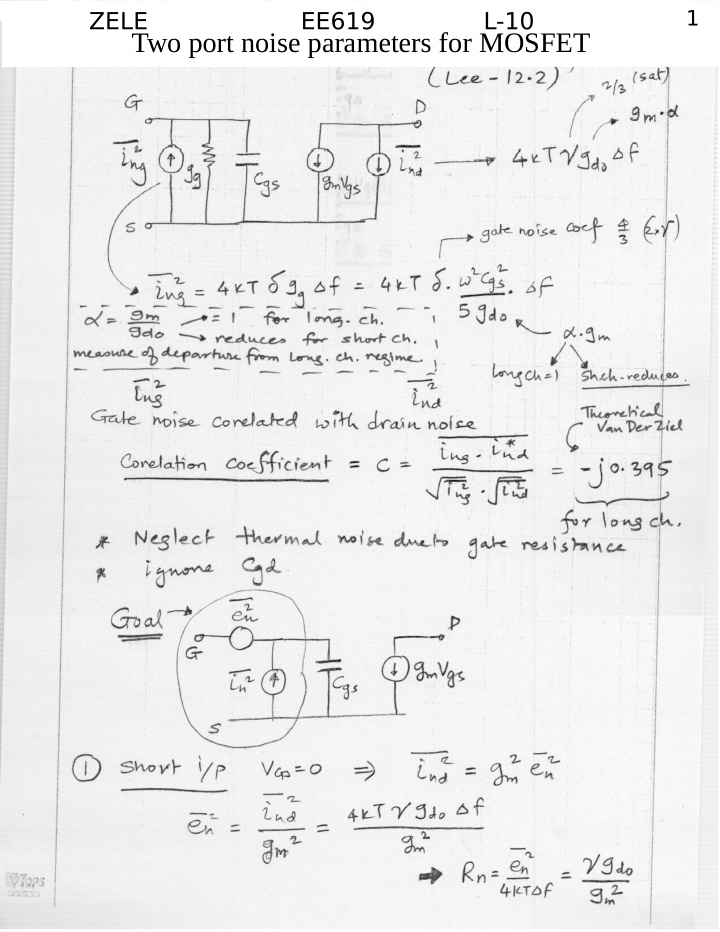 ZELE EE619 L-10 1
Two port noise parameters for MOSFET
(Lee - 12.2)
2/3 (sat)
gm·α
G D
i̅n̅g̅² gg Cgs gmVgs i̅n̅d̅² → 4kTγgdo Δf
S
→ gate noise coef 4/3 (2×γ)
i̅n̅g̅² = 4kT δ gg Δf = 4kT δ. ω²Cgs²/5gdo . Δf
α = gm/gdo → = 1 for long. ch.
→ reduces for short ch.
measure of departure from Long. ch. regime.
α.gm
Long ch=1 Sh.ch-reduces.
i̅n̅g̅² i̅n̅d̅²
Gate noise corelated with drain noise
Theoretical
Van Der Ziel
Corelation coefficient = C = ing · ind*/√ing² · √ind² = -j0.395
for long ch.
* Neglect thermal noise due to gate resistance
* ignone Cgd
Goal → e̅n̅²
G D
i̅n̅² Cgs gmVgs
S
① Short i/p VGS=0 ⇒ i̅n̅d̅² = gm² e̅n̅²
e̅n̅² = i̅n̅d̅²/gm² = 4kTγgdo Δf/gm²
➡ Rn = e̅n̅²/4kTΔf = γgdo/gm²
Tops